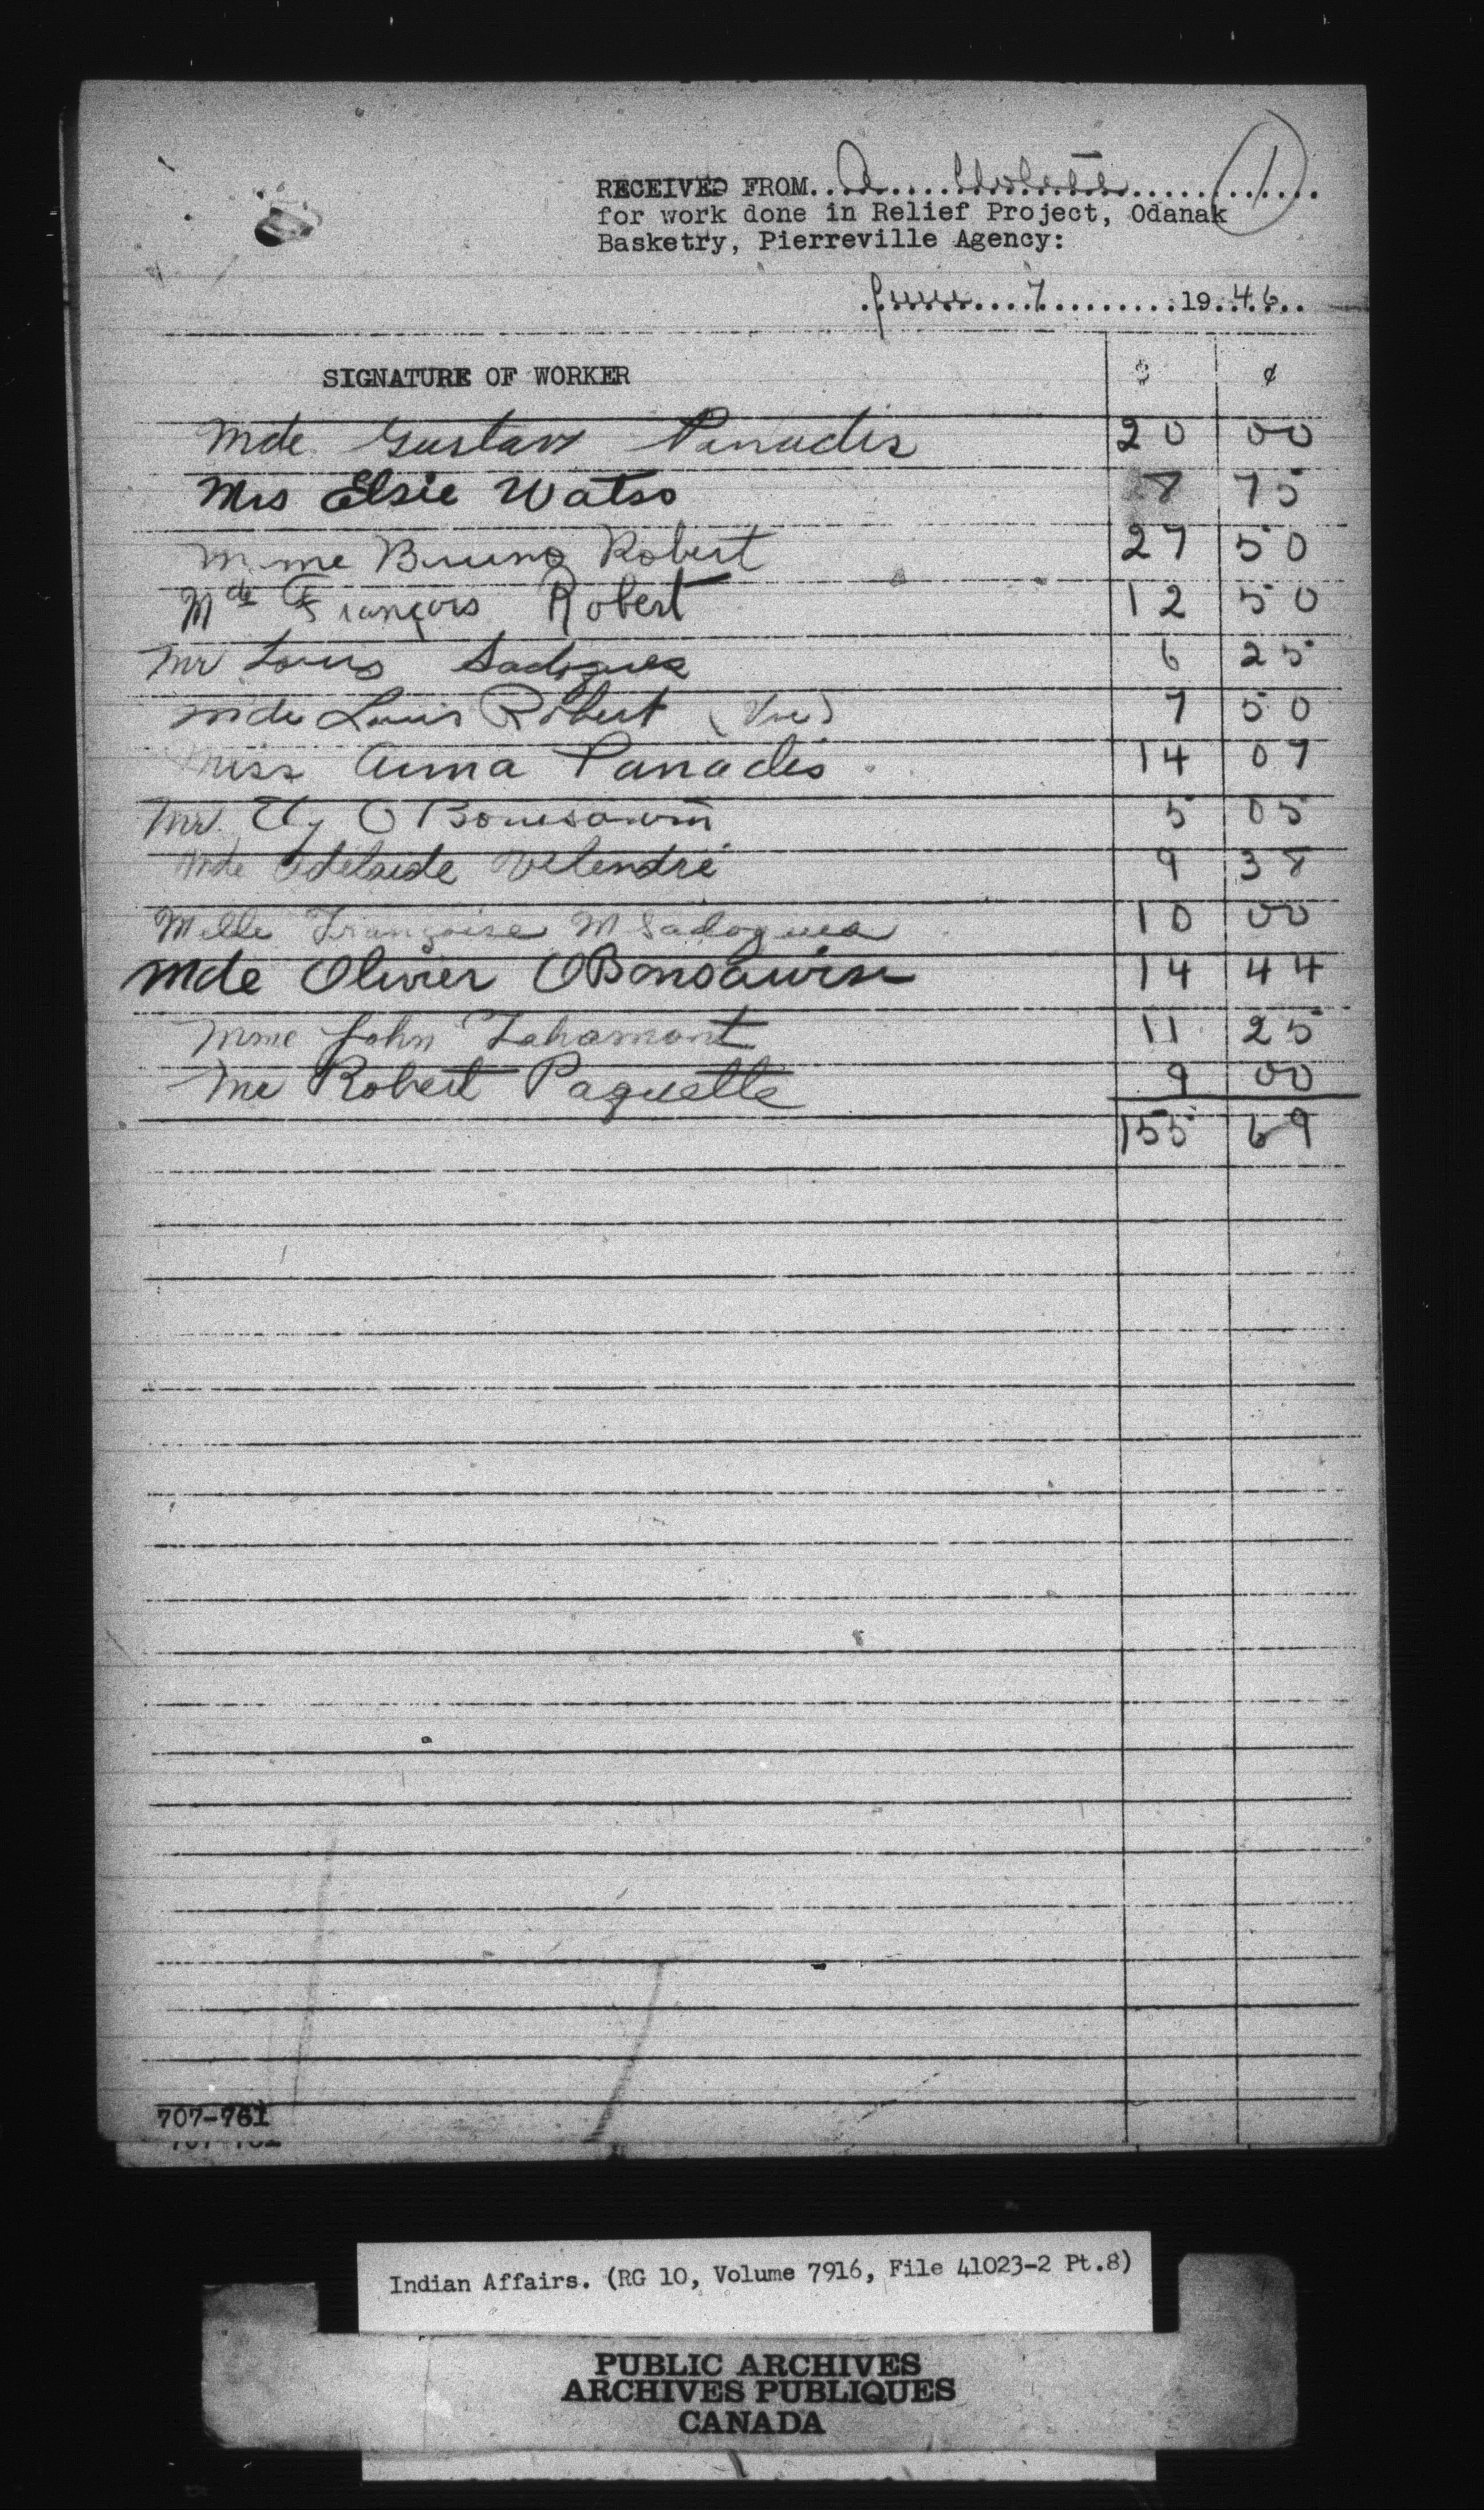 1
RECEIVED FROM..............................
for work done in Relief Project, Odanak
Basketry, Pierreville Agency:
June 7 19 46
SIGNATURE OF WORKER $ ¢
Mde Gustave Panadis 20 00
Mrs Elsie Watso 8 75
Mme Bruno Robert 27 50
Mde François Robert 12 50
Mr Louis Sadogues 6 25
Mde Louis Robert (Vve) 7 50
Miss Anna Panadis 14 07
Mr. Ely OBomsawin 5 05
Mde Adélaide 9 38
Melle Françoise M Sadogues 10 00
Mde Olivier OBomsawin 14 44
Mme John Tahamont 11 25
Mr Robert Paquette 9 00
155 69
707-761
Indian Affairs. (RG 10, Volume 7916, File 41023-2 Pt.8)
PUBLIC ARCHIVES
ARCHIVES PUBLIQUES
CANADA